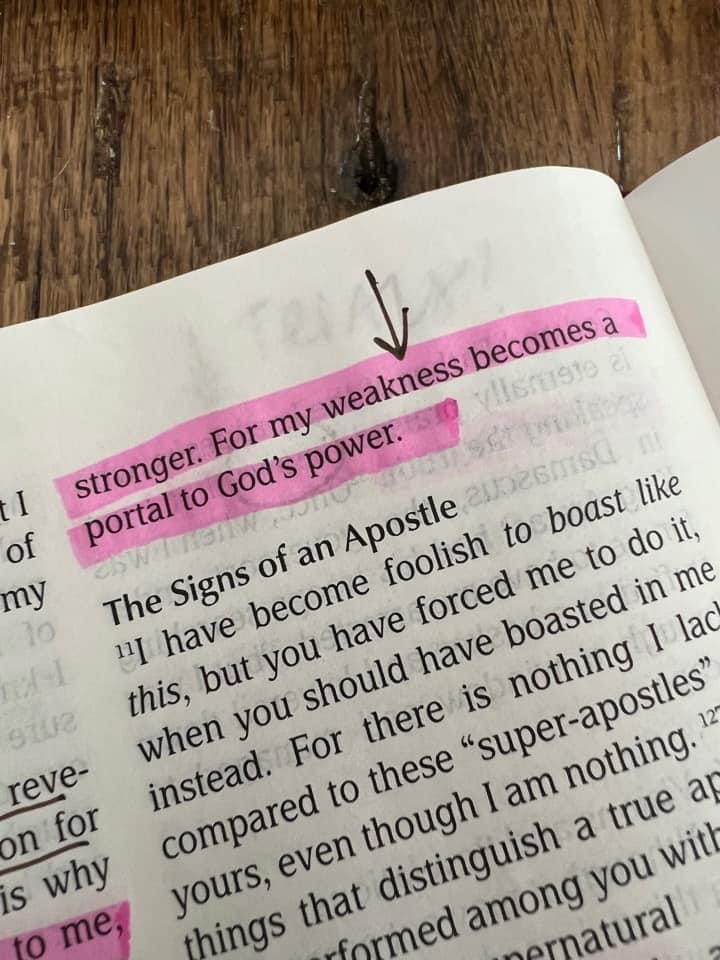 t I
of
my
reve-
on for
is why
to me,
stronger. For my weakness becomes a
portal to God's power.
The Signs of an Apostle
11I have become foolish to boast like
this, but you have forced me to do it,
when you should have boasted in me
instead. For there is nothing I lac
compared to these “super-apostles”
yours, even though I am nothing. 12
things that distinguish a true ap
rformed among you with
pernatural